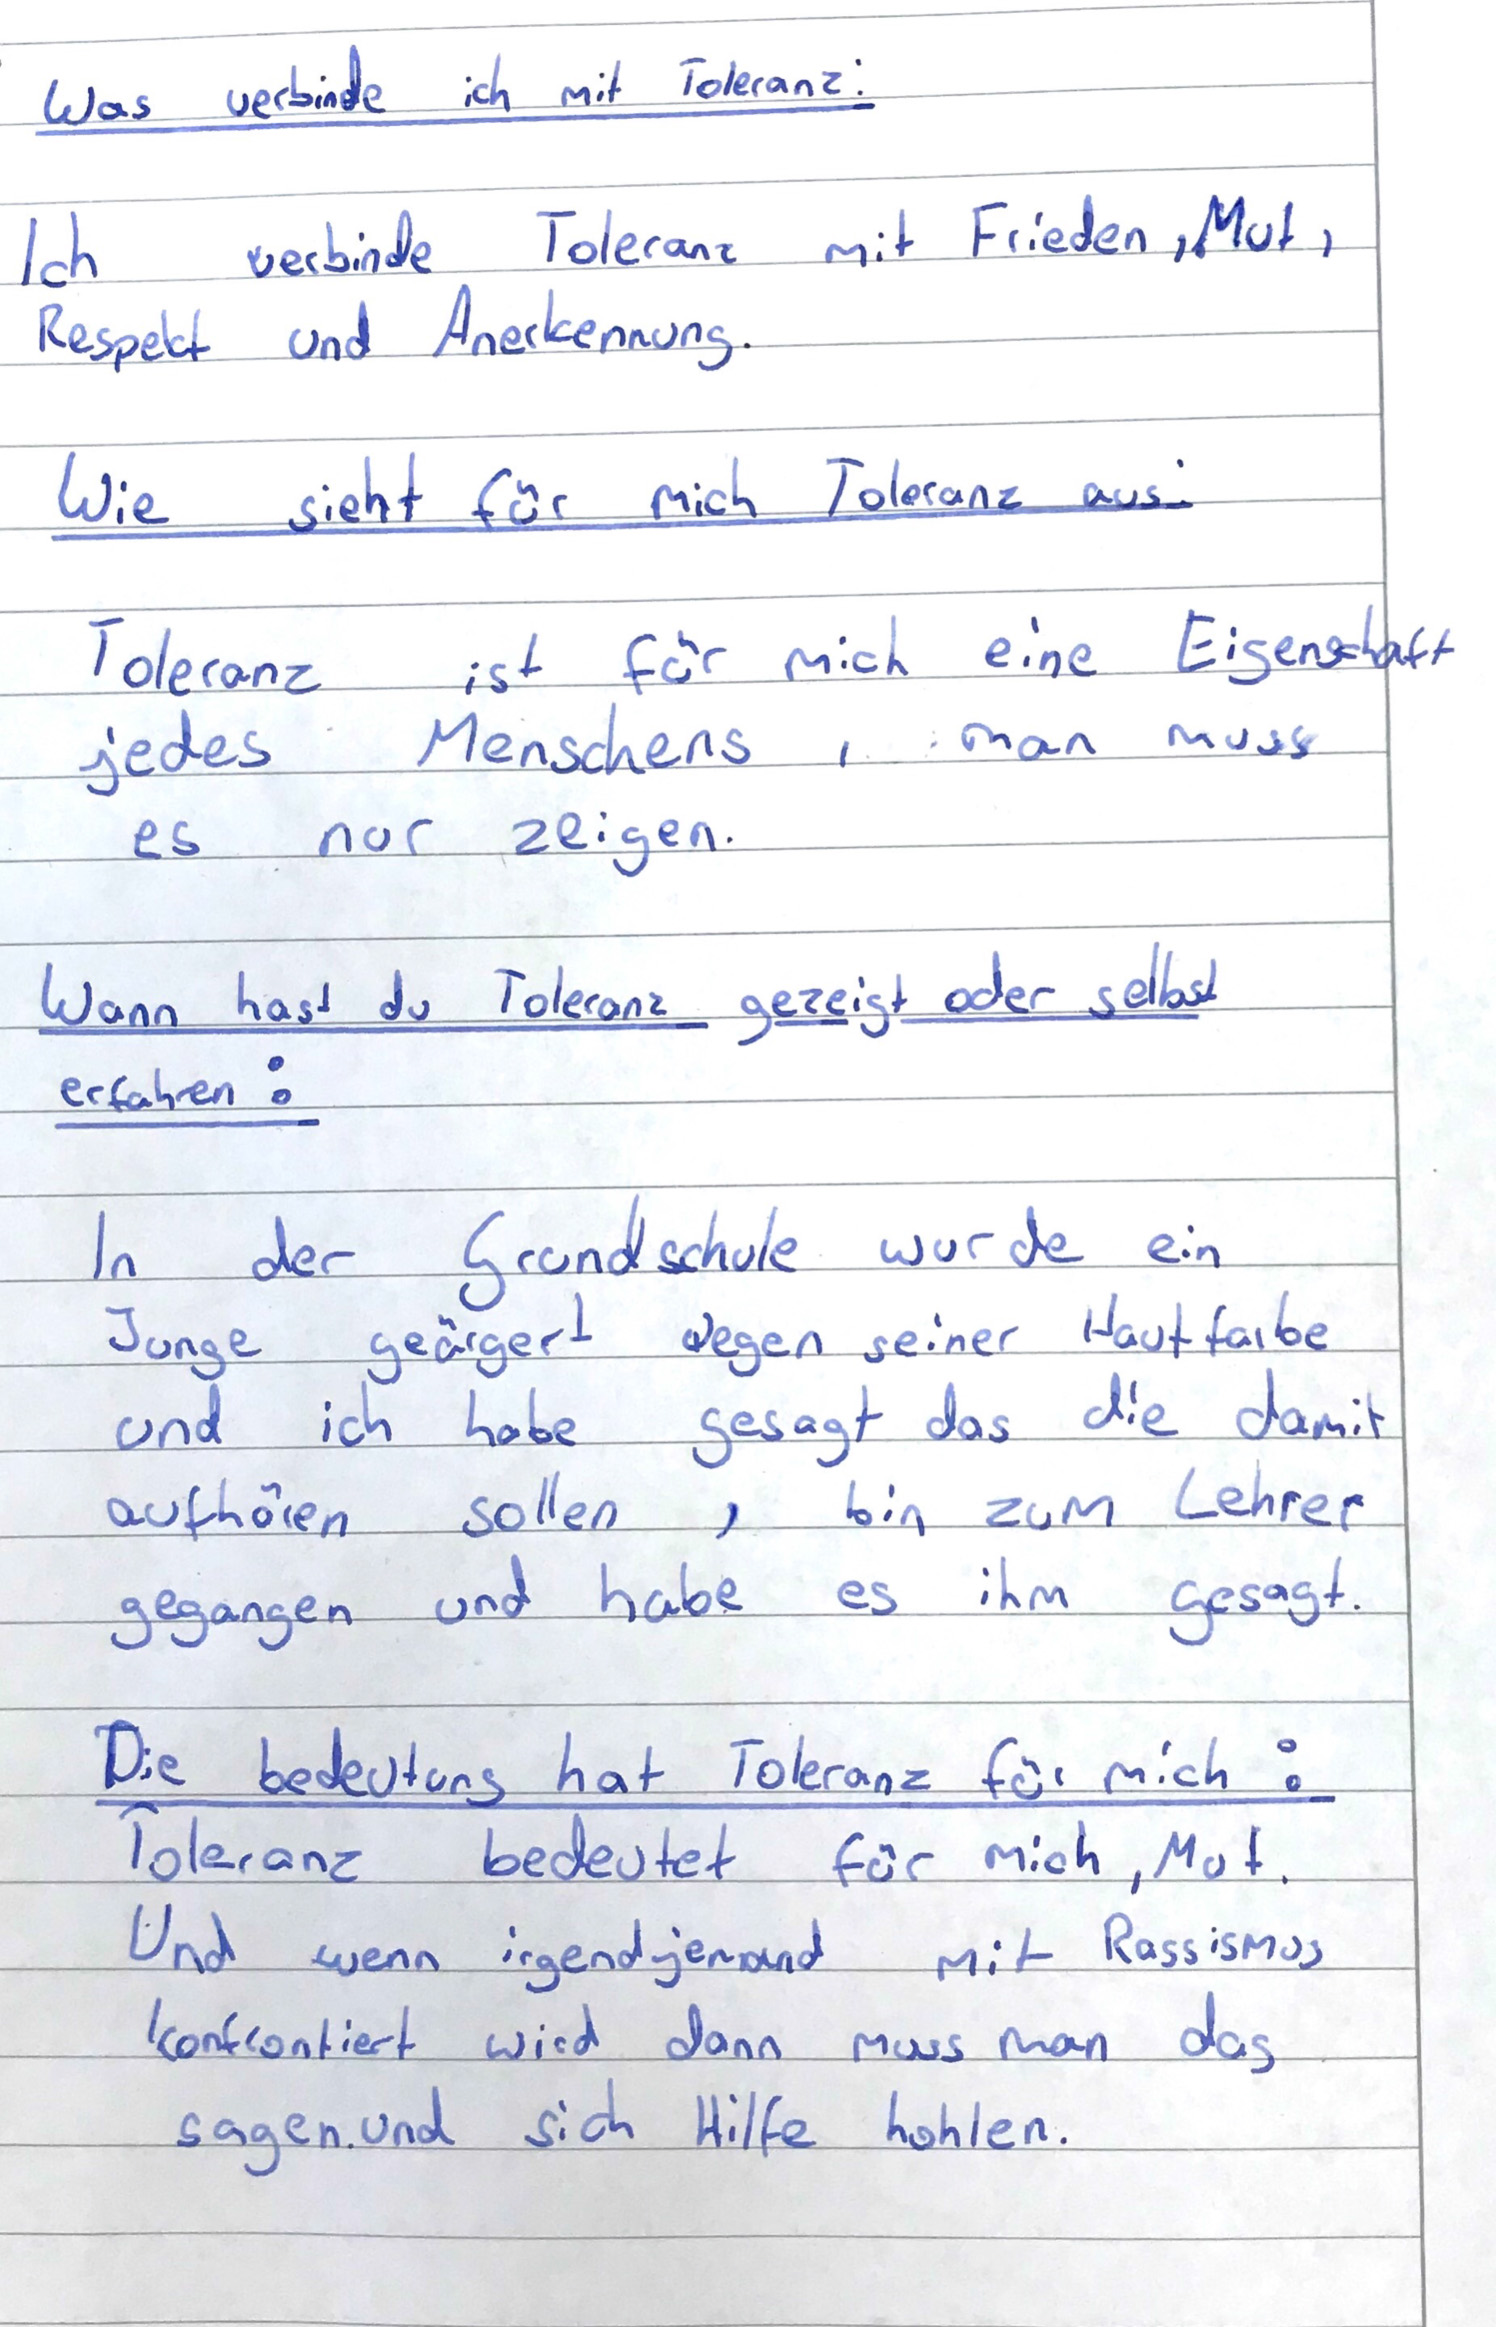 Was verbinde ich mit Toleranz:
Ich verbinde Toleranz mit Frieden, Mut,
Respekt und Anerkennung.
Wie sieht für mich Toleranz aus:
Toleranz ist für mich eine Eigenschaft
jedes Menschens, man muss
es nur zeigen.
Wann hast du Toleranz gezeigt oder selbst
erfahren:
In der Grundschule wurde ein
Junge geärgert wegen seiner Hautfarbe
und ich habe gesagt das die damit
aufhören sollen, bin zum Lehrer
gegangen und habe es ihm gesagt.
Die bedeutung hat Toleranz für mich:
Toleranz bedeutet für mich, Mut.
Und wenn irgendjemand mit Rassismus
konfrontiert wird dann muss man das
sagen.und sich Hilfe hohlen.